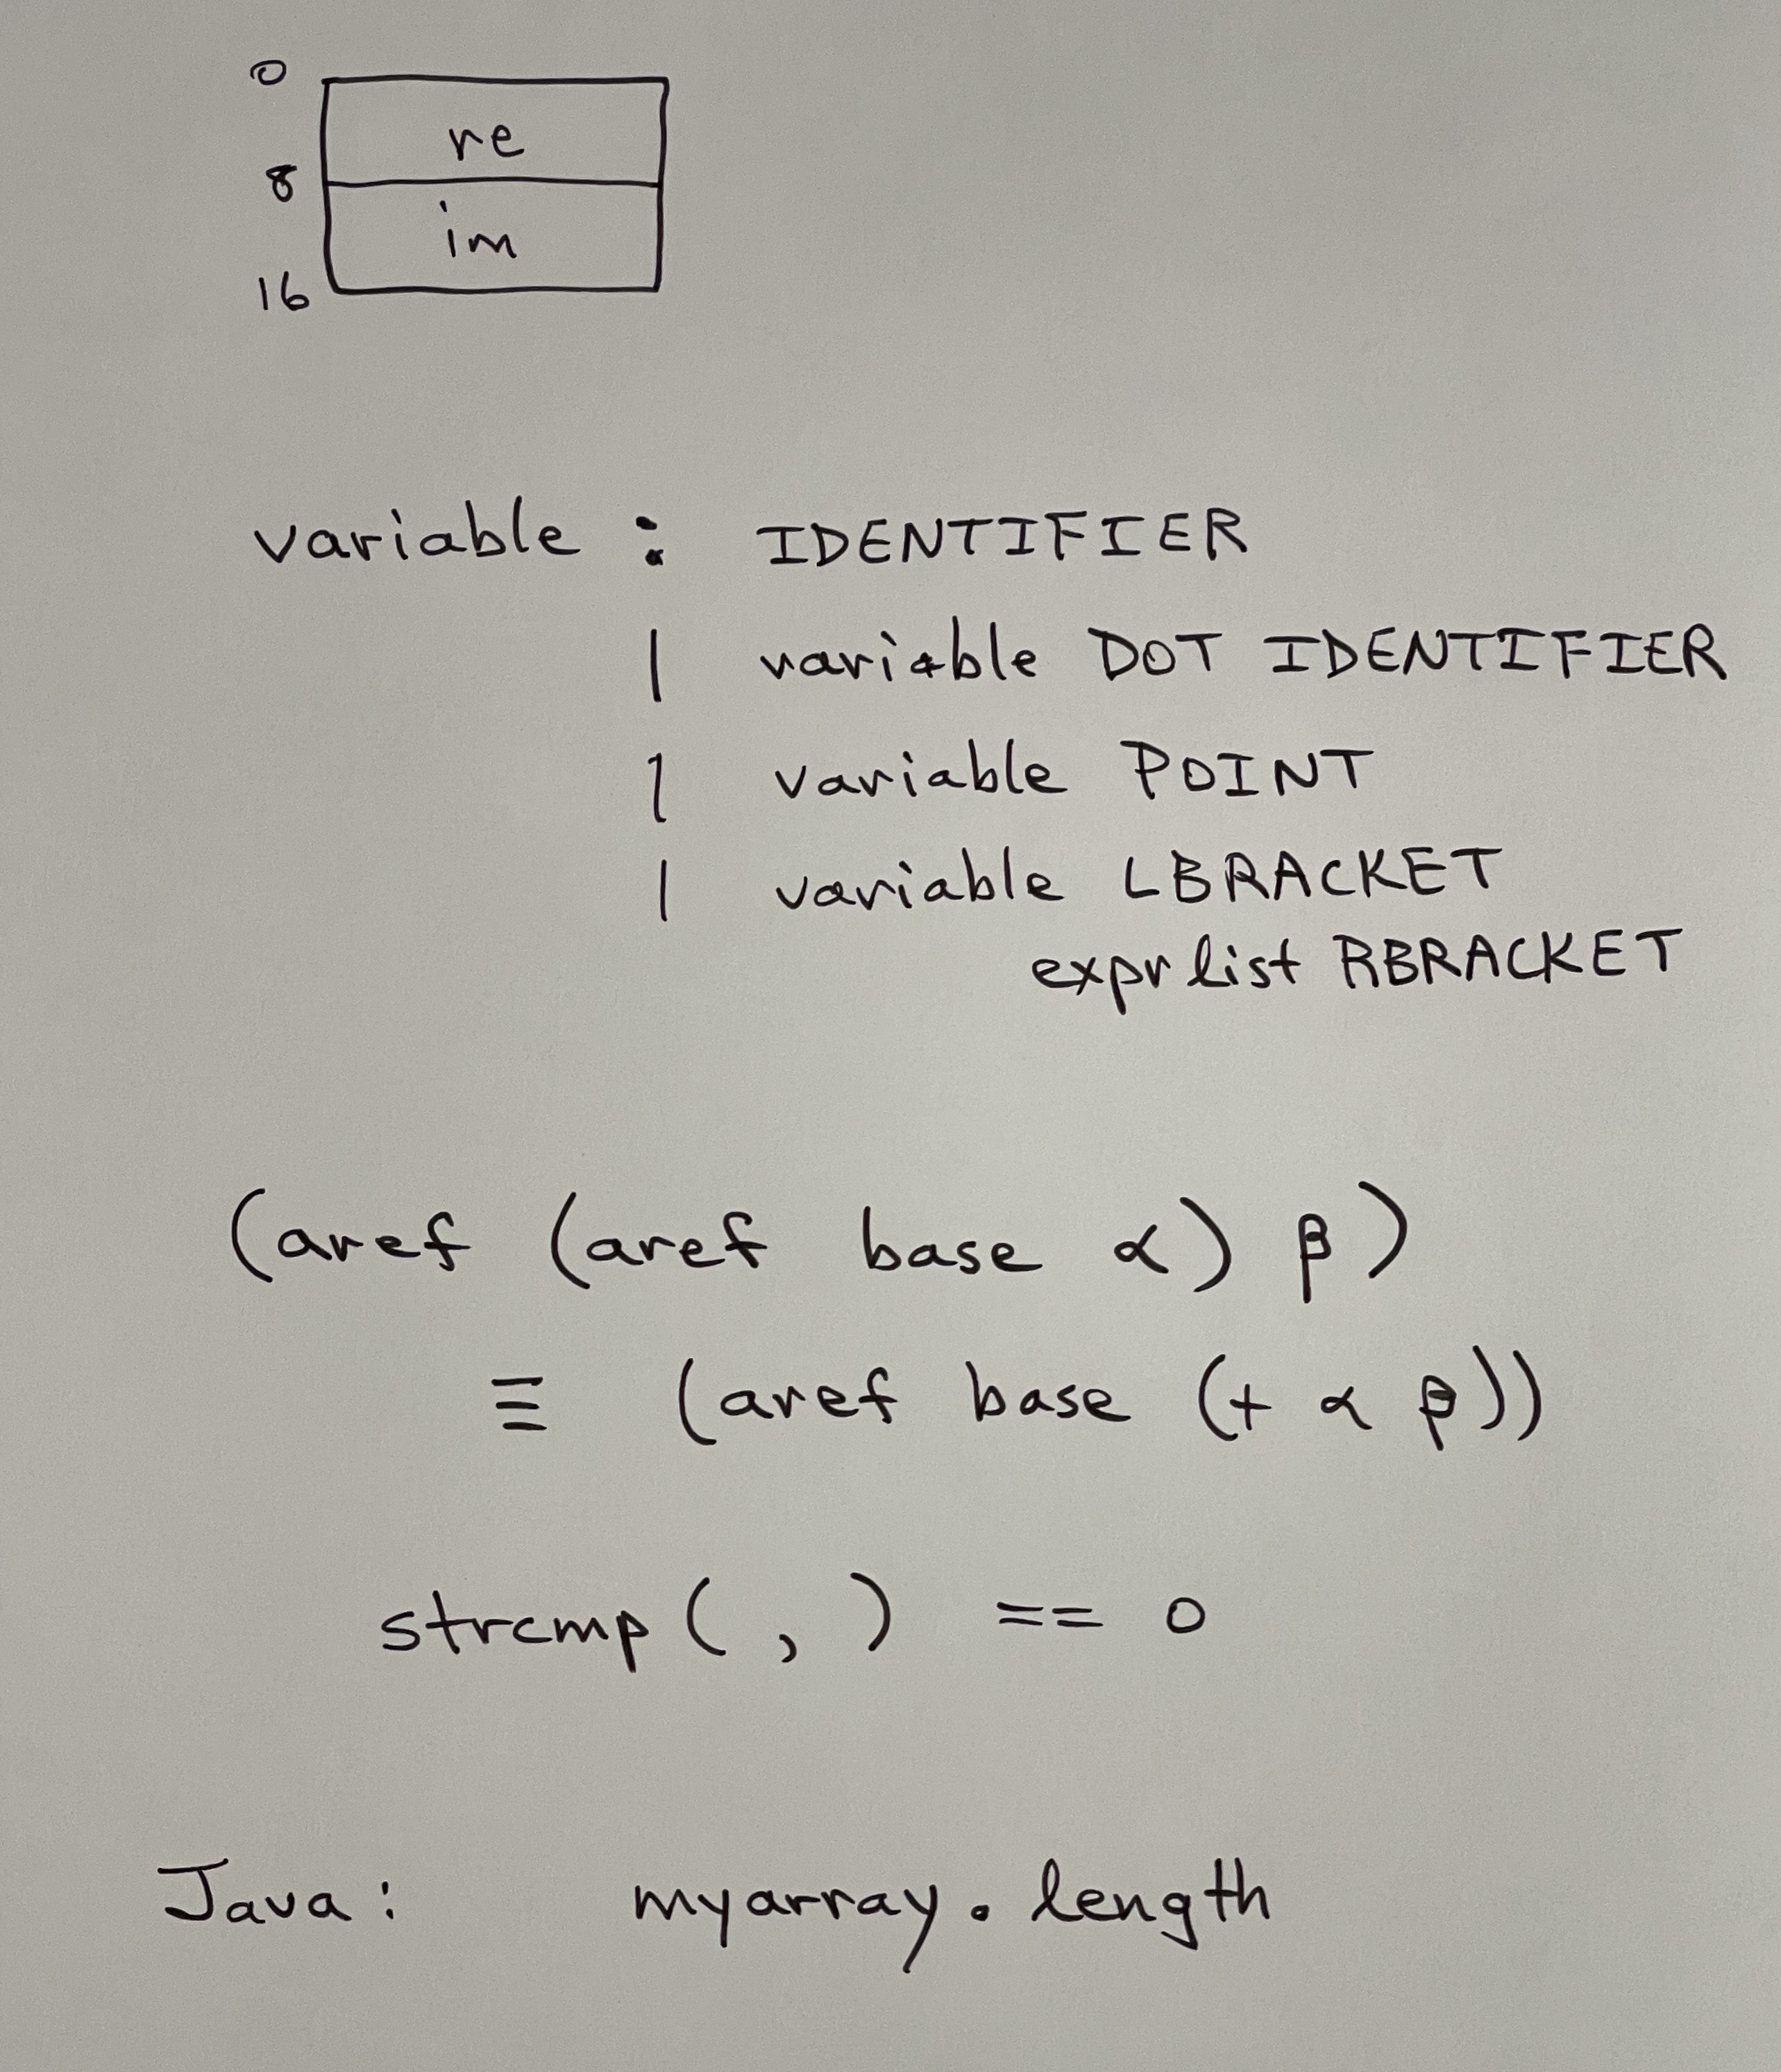 0
re
8
im
16
variable : IDENTIFIER
| variable DOT IDENTIFIER
| variable POINT
| variable LBRACKET
expr list RBRACKET
(aref (aref base α) β)
≡ (aref base (+ α β))
strcmp ( , ) == 0
Java: myarray.length